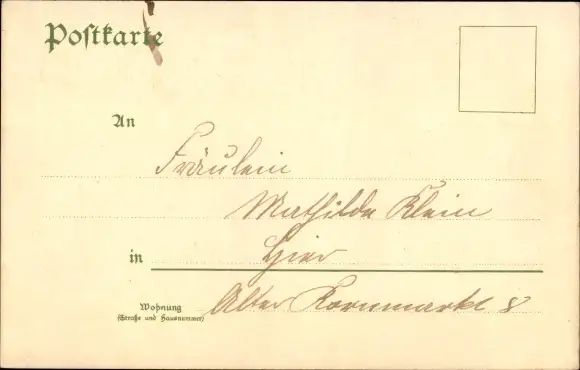 Postkarte
An
Fräulein
Mathilde Klein
in Hier
Wohnung
(Straße und Hausnummer)
Alter Kornmarkt 8